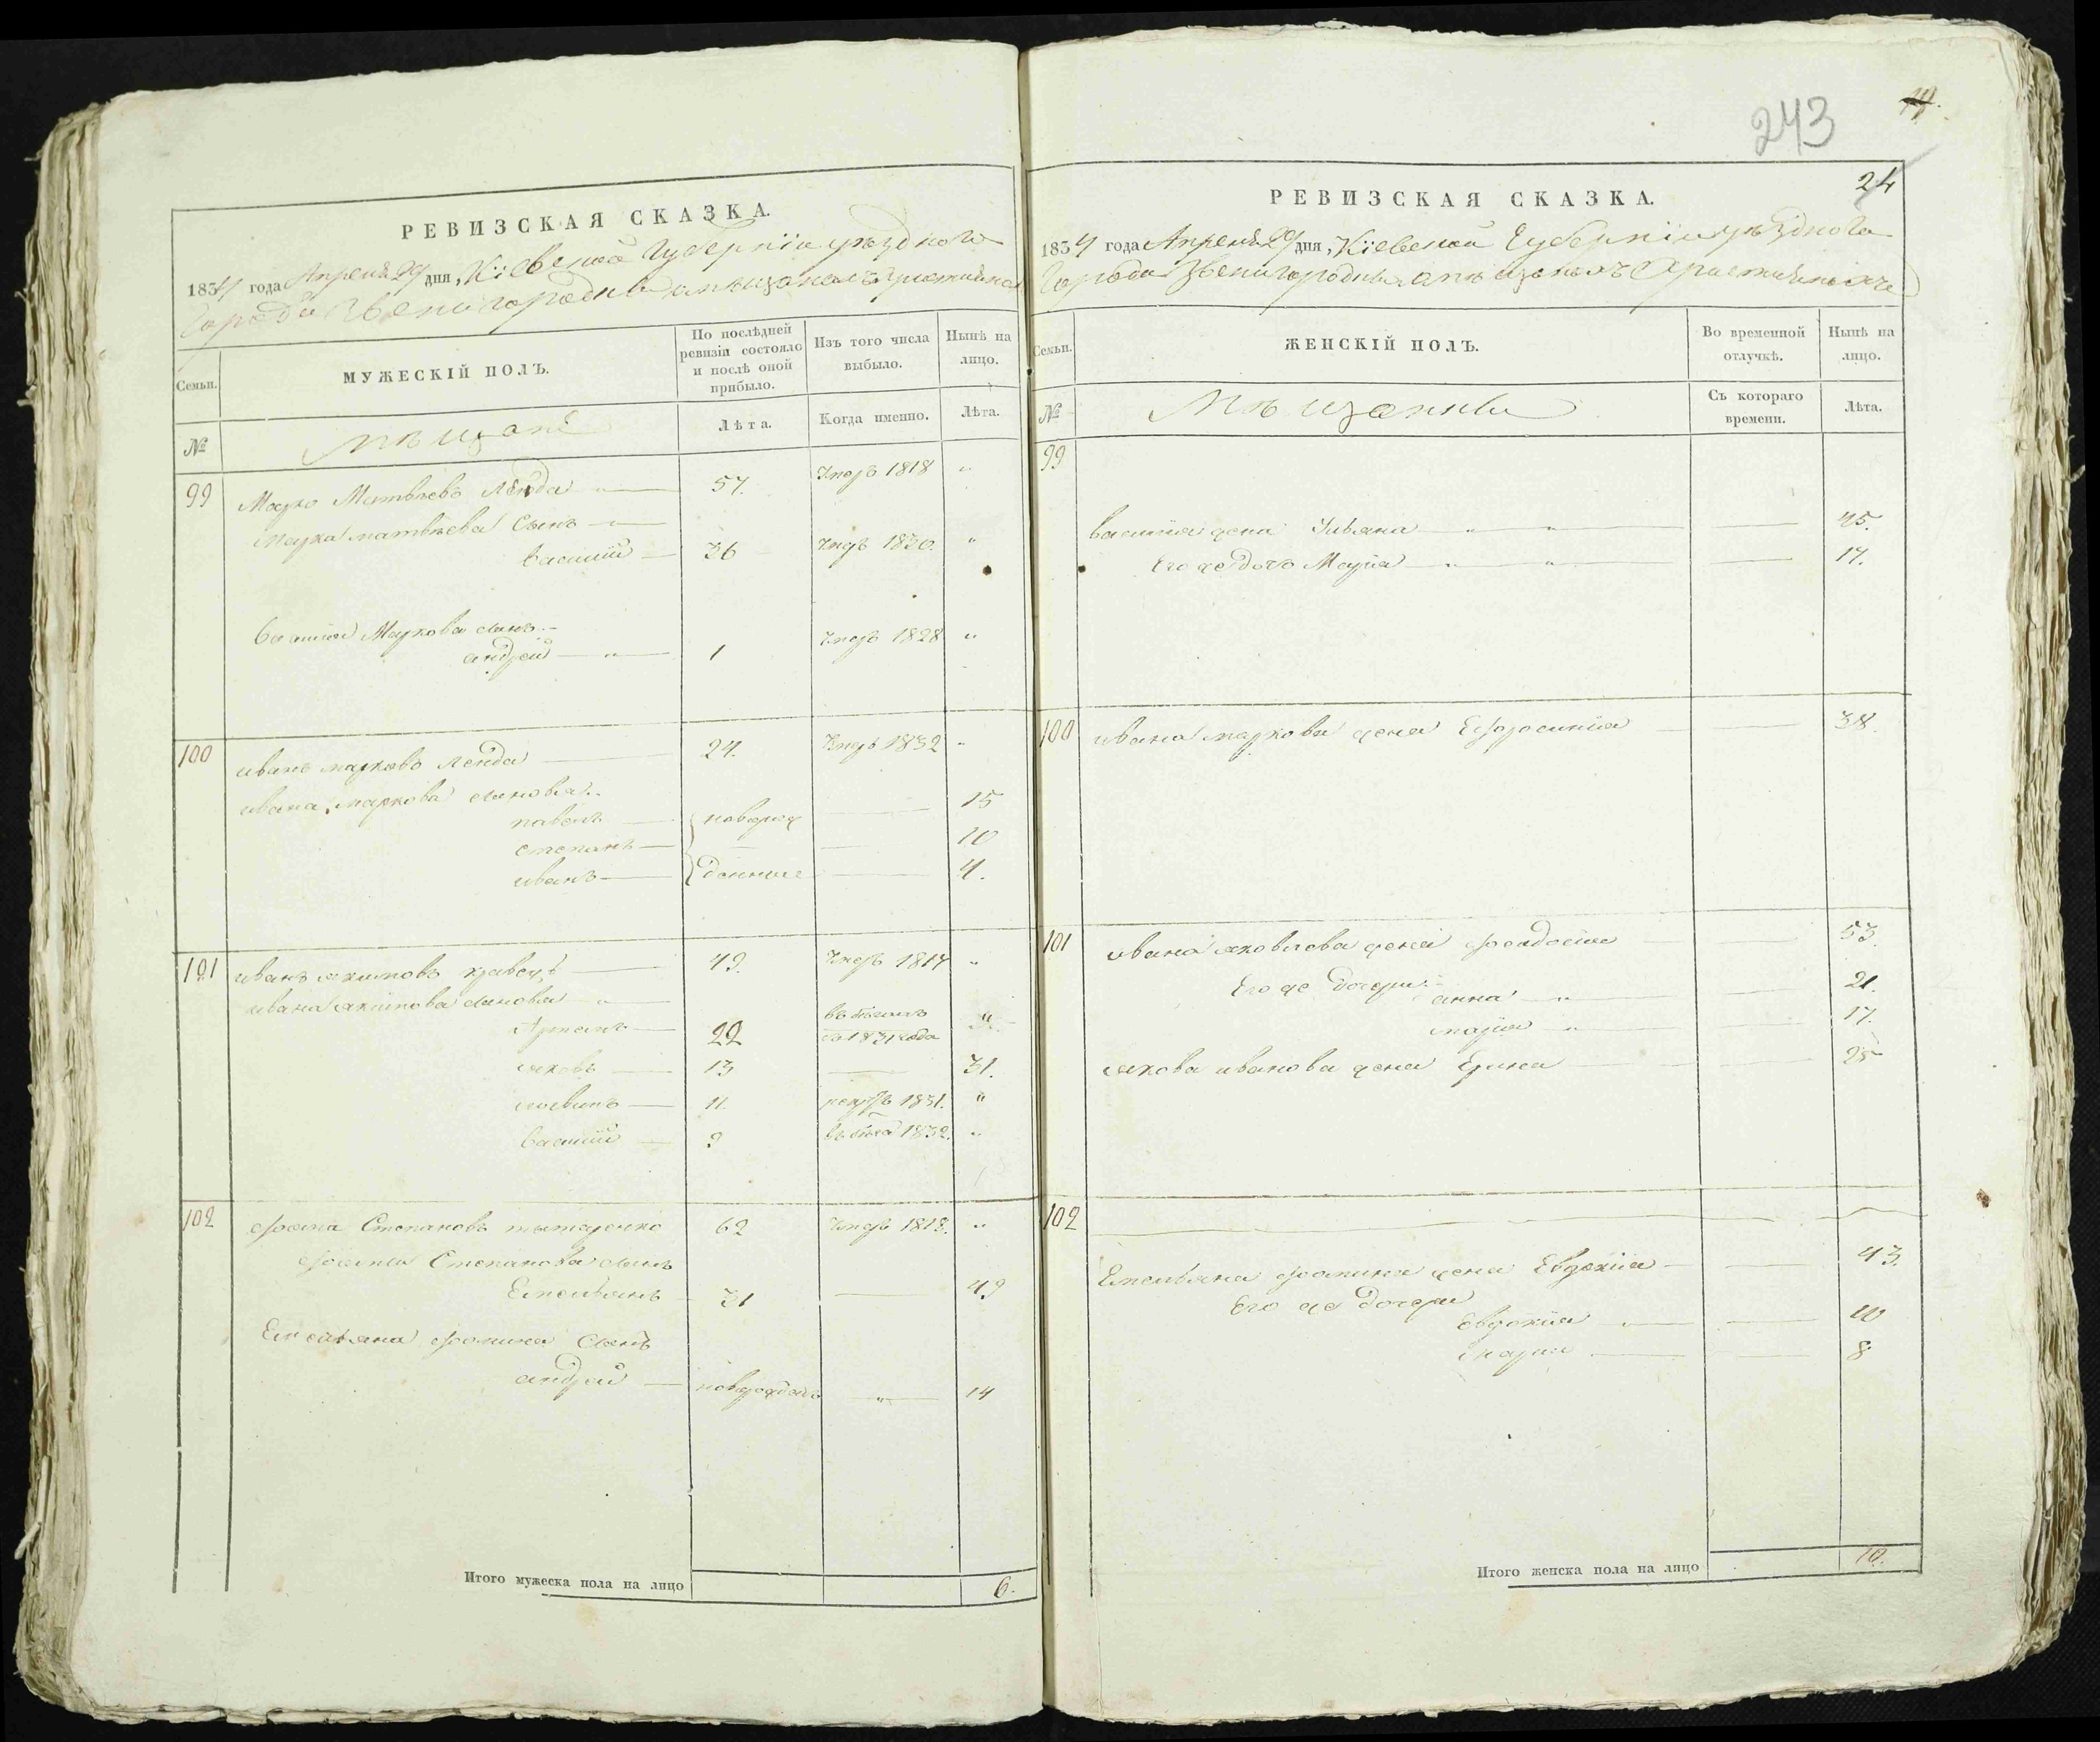 РЕВИЗСКАЯ СКАЗКА.
1834 года Апреля 29 дня, Кіевской Губерніи уѣзднаго
Города Звенигородки о мѣщанахъ
Семьи.
МУЖЕСКІЙ ПОЛЪ.
По послѣдней ревизіи состояло и послѣ оной прибыло.
Изъ того числа выбыло.
Нынѣ на лицо.
№
мѣщане
Лѣта.
Когда именно.
Лѣта.
99 Марко Матвѣевъ Ленда 57. Умеръ 1818 "
Марка матвѣева Сынъ
Василій 36 Умеръ 1830. "
Василія Маркова сынъ
андрей 1 Умеръ 1828 "
100 иванъ марковъ Ленда 24. Умеръ 1832 "
ивана маркова сыновья
павелъ новорож 15
степанъ 10
иванъ денные 4.
101 иванъ якимовъ кравецъ 49. Умеръ 1814 "
ивана якимова сыновья
Артемъ 22 въ бѣгахъ съ 1831 года "
яковъ 13 31.
11. рекрутъ 1831. "
василій 9 1832. "
102 фома Степановъ 62 Умеръ 1818. "
фомы Степанова сынъ
Емельянъ 31 49
Емельяна фомина Сынъ
андрей новорожденъ " 14
Итого мужеска пола на лицо 6.
243
24
РЕВИЗСКАЯ СКАЗКА.
1834 года Апреля 29 дня, Кіевской Губерніи уѣзднаго
Города Звенигородки о мѣщанахъ
Семьи.
ЖЕНСКІЙ ПОЛЪ.
Во временной отлучкѣ.
Нынѣ на лицо.
№
Мѣщанки
Съ котораго времени.
Лѣта.
99
Василія жена Ульяна 45.
Его же дочь Марія 17.
100 ивана маркова жена Ефросинія 38.
101 ивана яковлева жена феодосія 53.
Его же дочери
анна 21.
марія 17.
якова иванова жена Ирина 25
102
Емельяна фомина жена Евдокія 43.
Его же дочери
Евдокія 10
марія 8
Итого женска пола на лицо 10.